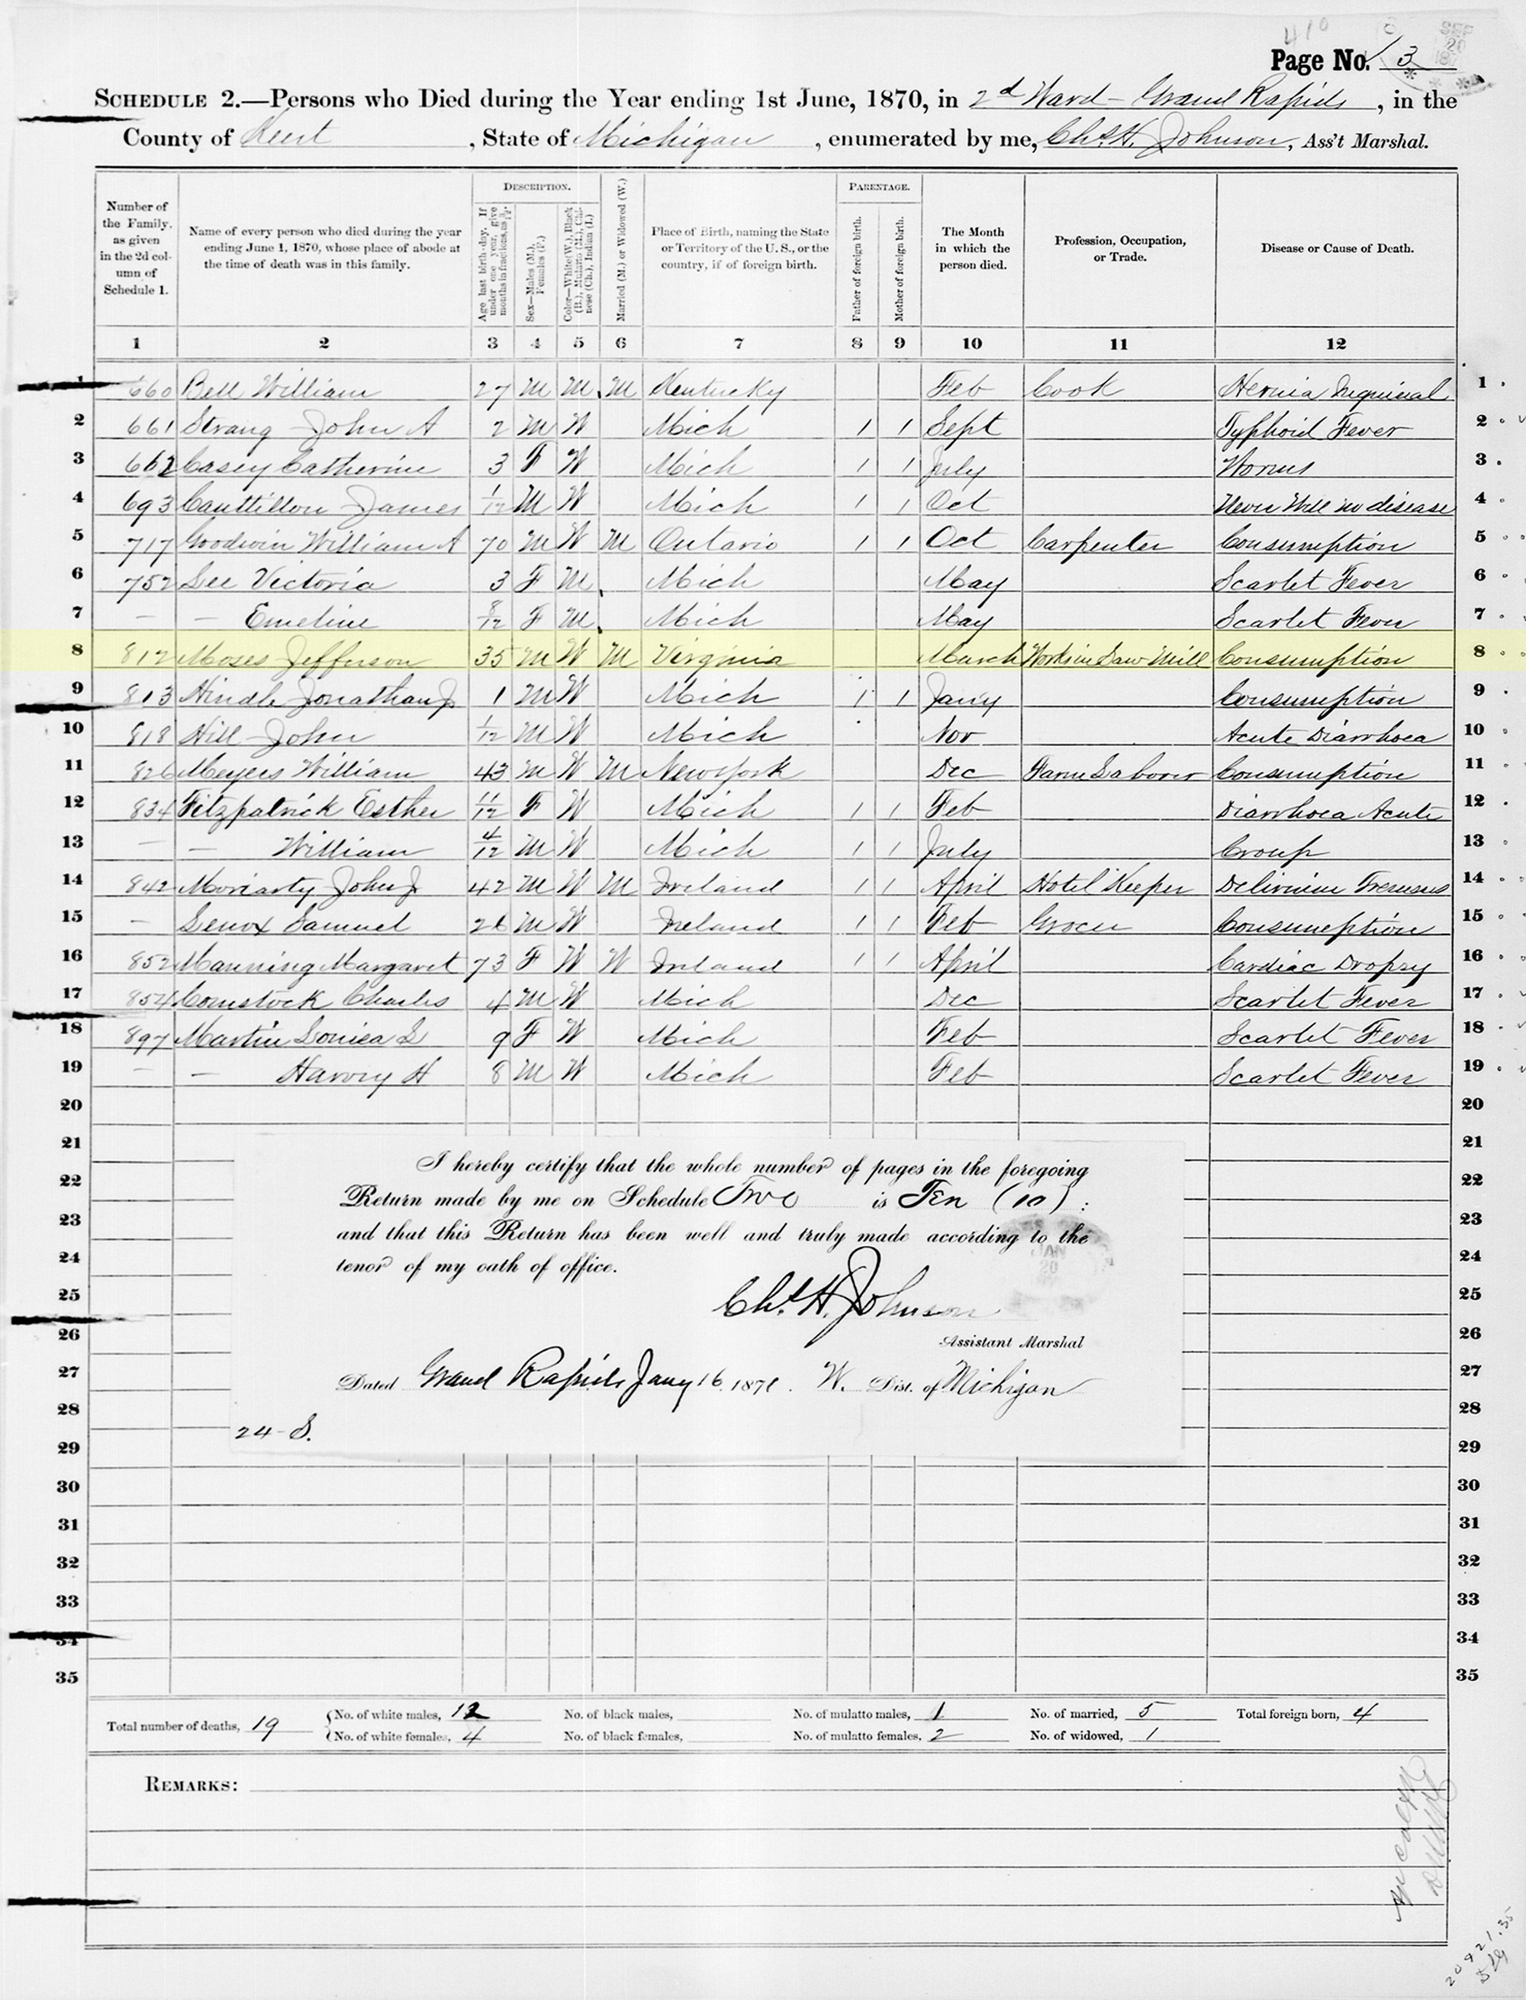 Page No. 3
SCHEDULE 2.—Persons who Died during the Year ending 1st June, 1870, in 2d Ward - Grand Rapids, in the
County of Kent, State of Michigan, enumerated by me, Chs. H. Johnson, Ass't Marshal.
Number of the Family, as given in the 2d column of Schedule 1.
Name of every person who died during the year ending June 1, 1870, whose place of abode at the time of death was in this family.
DESCRIPTION.
Age last birth-day. If under one year, give months in fractions, as 3/12.
Sex—Males (M.), Females (F.)
Color—White (W.), Black (B.), Mulatto (M.), Chinese (Ch.), Indian (I.)
Married (M.) or Widowed (W.)
Place of Birth, naming the State or Territory of the U. S., or the country, if of foreign birth.
PARENTAGE.
Father of foreign birth.
Mother of foreign birth.
The Month in which the person died.
Profession, Occupation, or Trade.
Disease or Cause of Death.
1 2 3 4 5 6 7 8 9 10 11 12
1 660 Bell William 27 M M M Kentucky Feb Cook Hernia Inguinal 1
2 661 Strang John A 2 M W Mich 1 1 Sept Typhoid Fever 2
3 662 Casey Catherine 3 F W Mich 1 1 July Worms 3
4 693 Cauttillon James 1/12 M W Mich 1 1 Oct Never Well no disease 4
5 717 Goodwin William A 70 M W M Ontario 1 1 Oct Carpenter Consumption 5
6 752 Lee Victoria 3 F M Mich May Scarlet Fever 6
7 — — Emeline 8/12 F M Mich May Scarlet Fever 7
8 812 Moses Jefferson 35 M W M Virginia March Works in Saw Mill Consumption 8
9 813 Hindle Jonathan J 1 M W Mich 1 1 Jany Consumption 9
10 818 Hill John 1/12 M W Mich Nov Acute Diarrhoea 10
11 826 Meyers William 43 M W M New York Dec Farm Laborer Consumption 11
12 834 Fitzpatrick Esther 11/12 F W Mich 1 1 Feb Diarrhoea Acute 12
13 — — William 4/12 M W Mich 1 1 July Croup 13
14 842 Moriarty John J 42 M W M Ireland 1 1 April Hotel Keeper Delirium Tremens 14
15 — Lenox Samuel 26 M W Ireland 1 1 Feb Grocer Consumption 15
16 852 Manning Margaret 73 F W W Ireland 1 1 April Cardiac Dropsy 16
17 854 Comstock Charles 4 M W Mich Dec Scarlet Fever 17
18 897 Martin Louisa L 9 F W Mich Feb Scarlet Fever 18
19 — — Harvey H 8 M W Mich Feb Scarlet Fever 19
20 20
21 21
22 22
23 23
24 24
25 25
26 26
27 27
28 28
29 29
I hereby certify that the whole number of pages in the foregoing
Return made by me on Schedule Two is Ten (10):
and that this Return has been well and truly made according to the
tenor of my oath of office.
JAN 20
Chs. H. Johnson
Assistant Marshal
Dated Grand Rapids Jany 16 1871. W. Dist. of Michigan
24 - S.
30 30
31 31
32 32
33 33
34 34
35 35
Total number of deaths, 19
No. of white males, 12 No. of black males, No. of mulatto males, 1 No. of married, 5 Total foreign born, 4
No. of white females, 4 No. of black females, No. of mulatto females, 2 No. of widowed, 1
REMARKS: